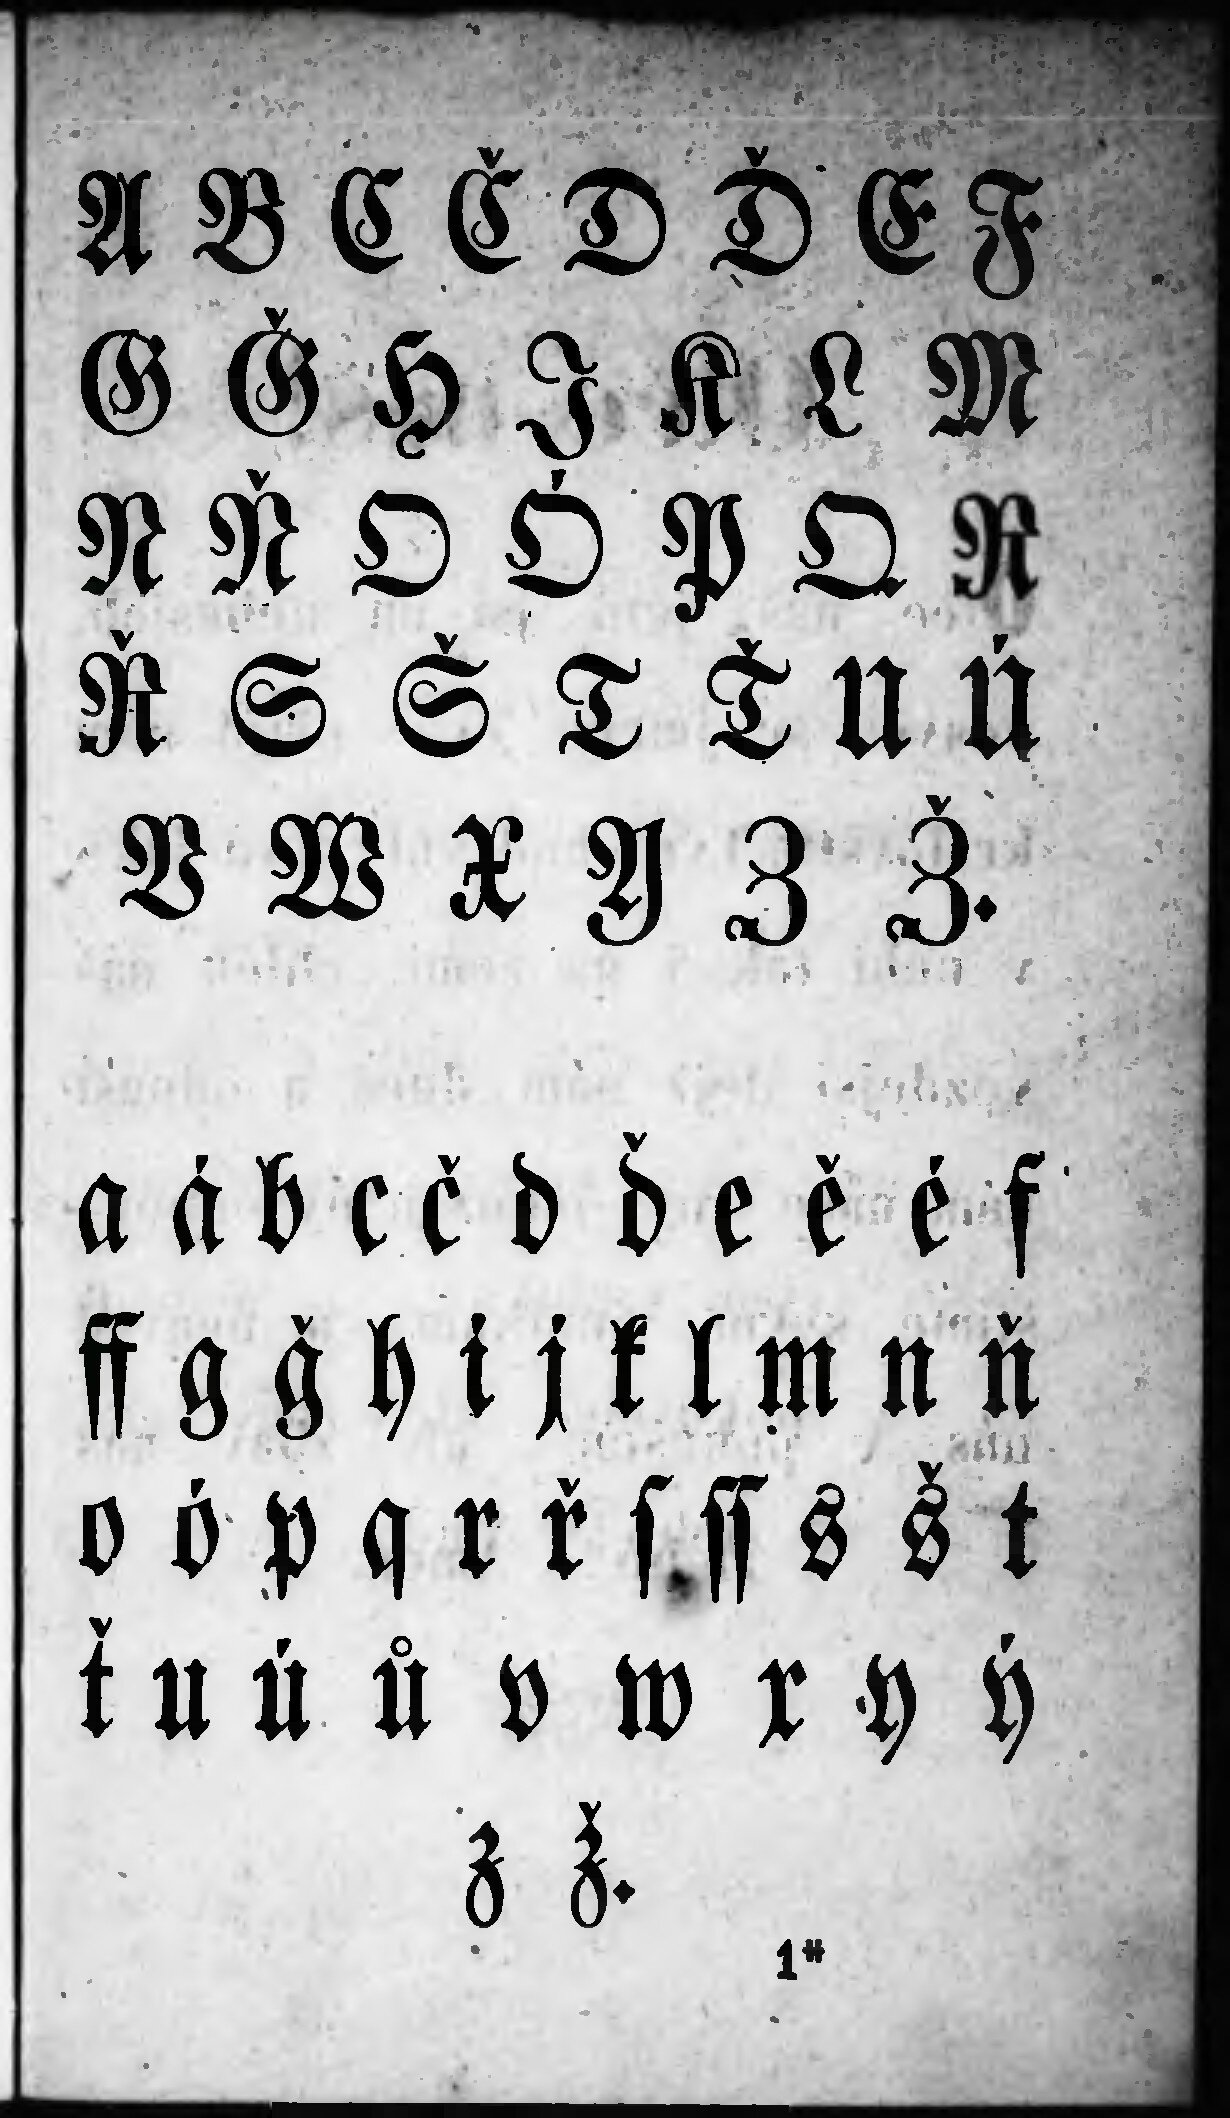 A B C Č D Ď E F
G Ǧ H J K L M
N Ň O Ó P Q R
Ř S Š T Ť U Ú
V W X Y Z Ž.
a á b c č d ď e ě é f
ff g ǧ h i j k l m n ň
o ó p q r ř ſ ſſ s š t
ť u ú ů v w x y ý
z ž.
1*